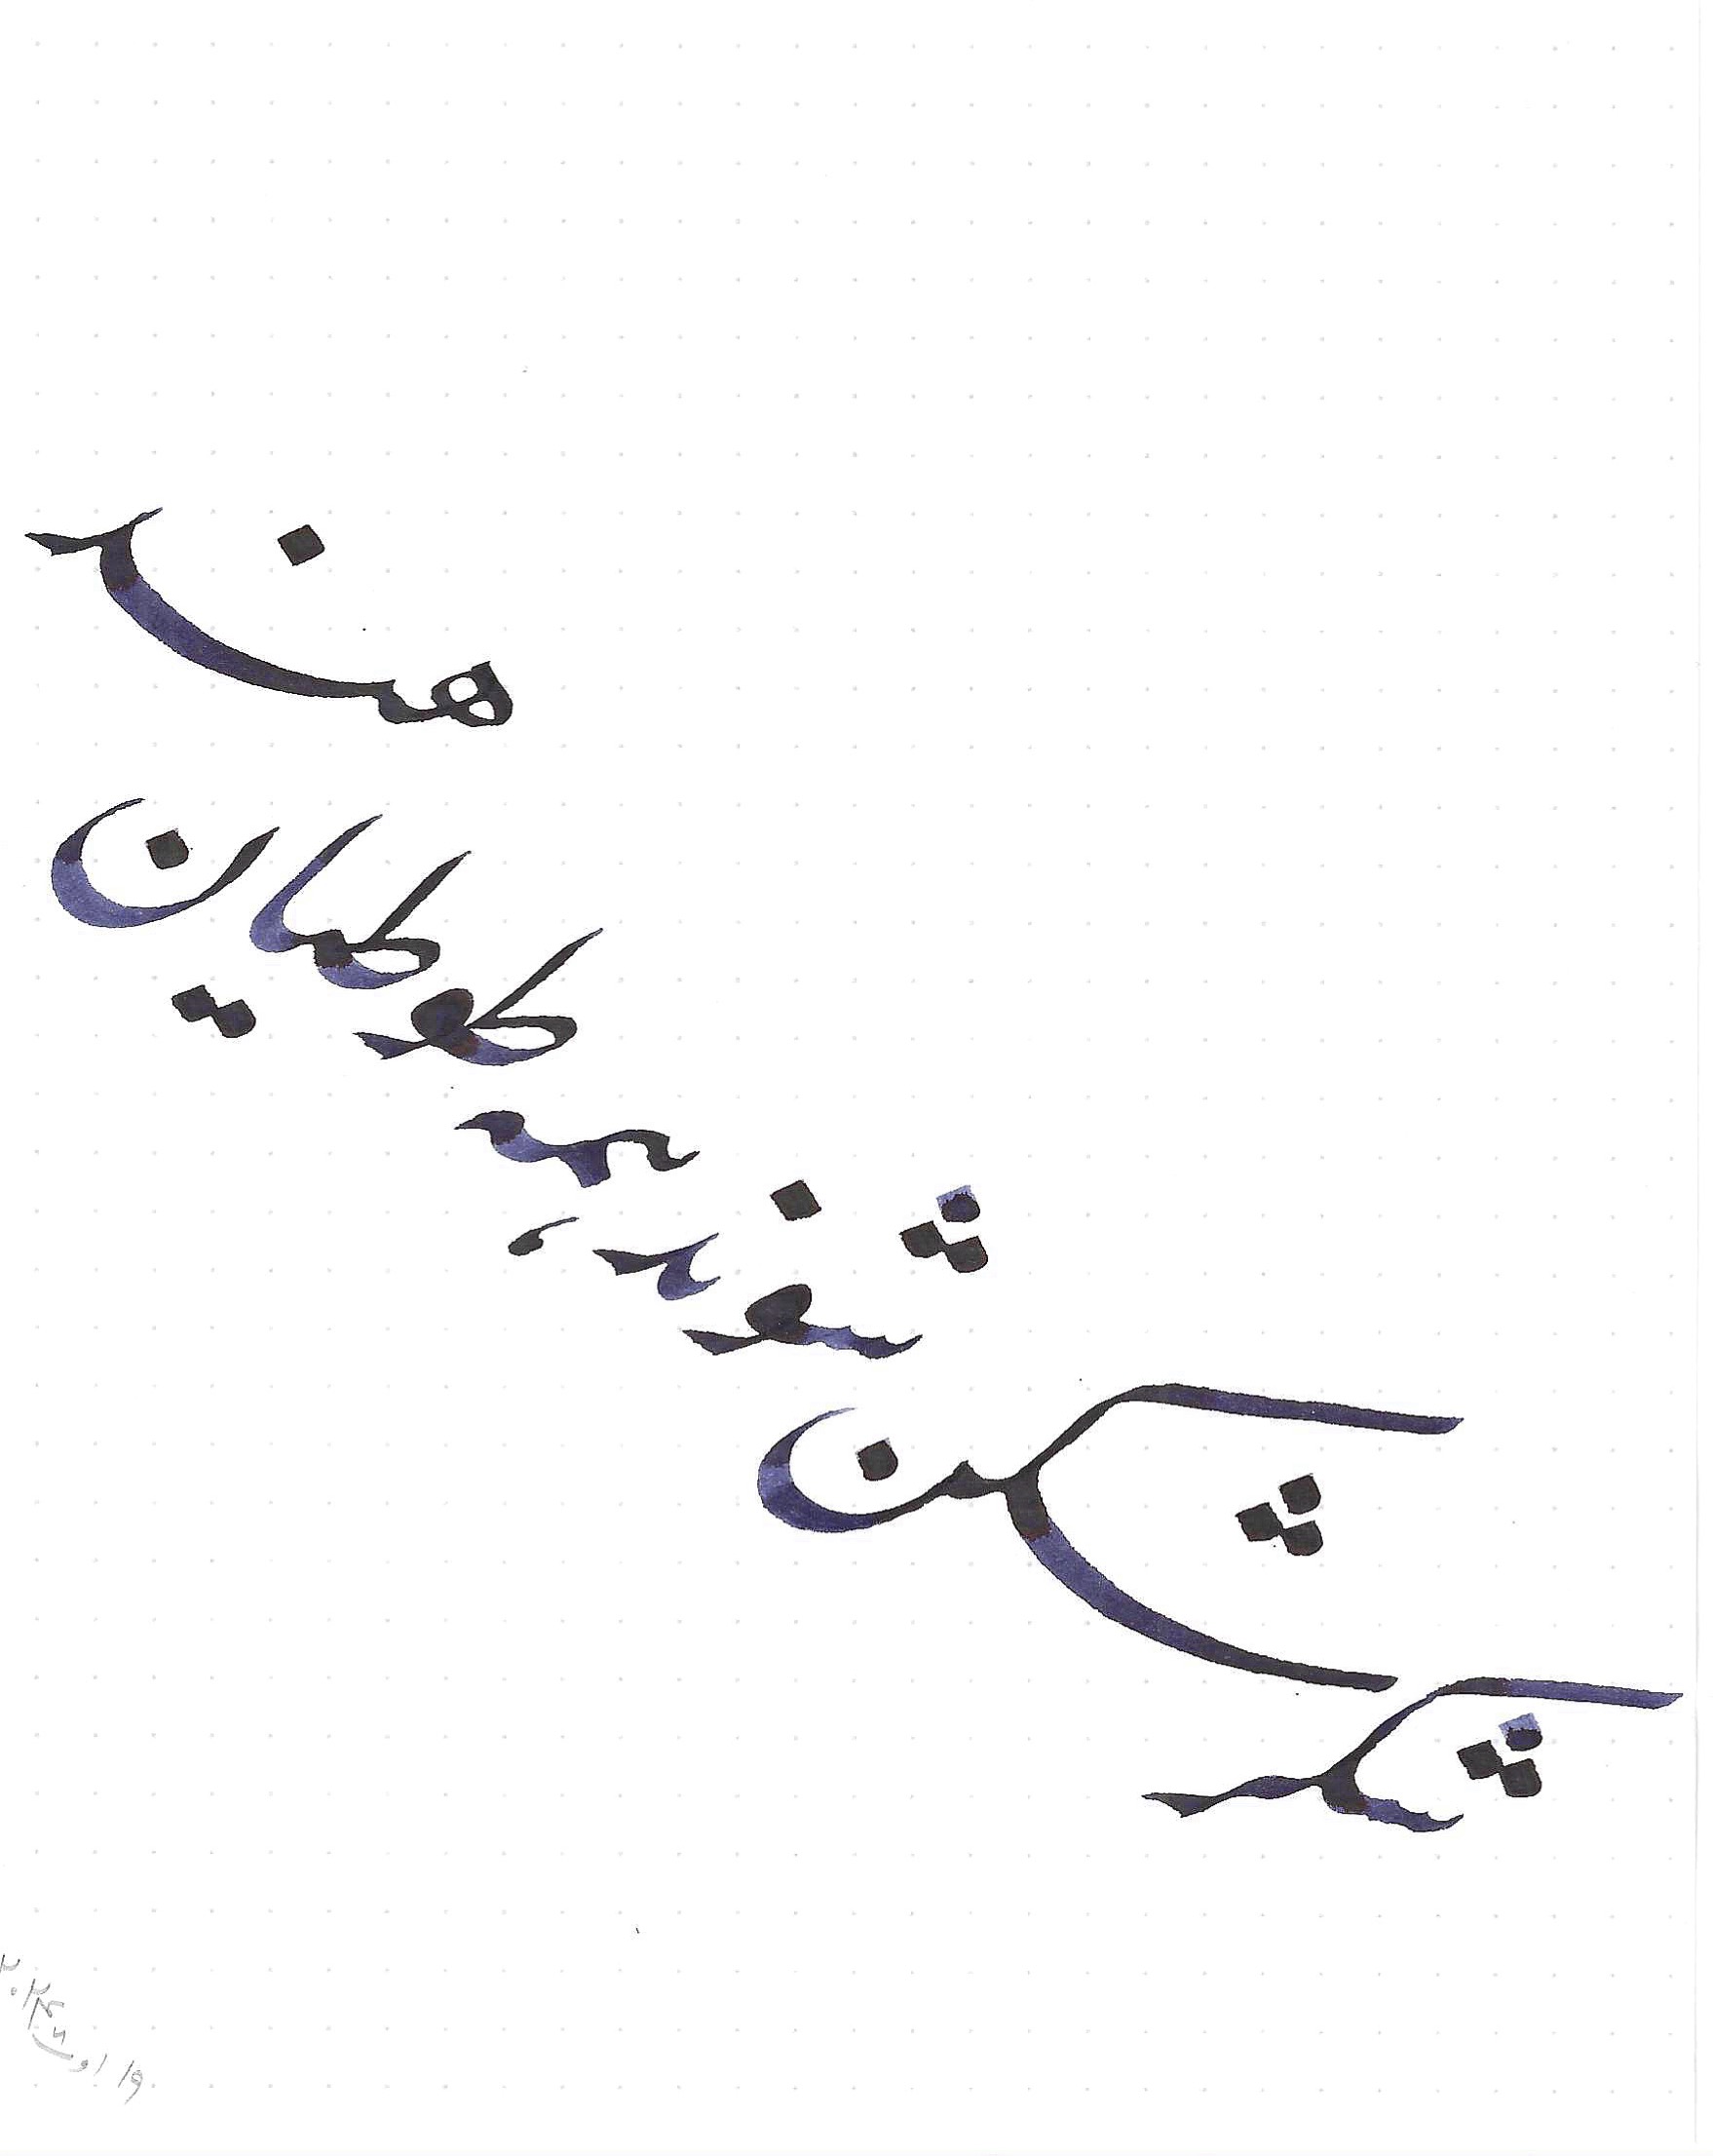 شکر شکن شوند همه طوطیان هند
۱۹ اوت